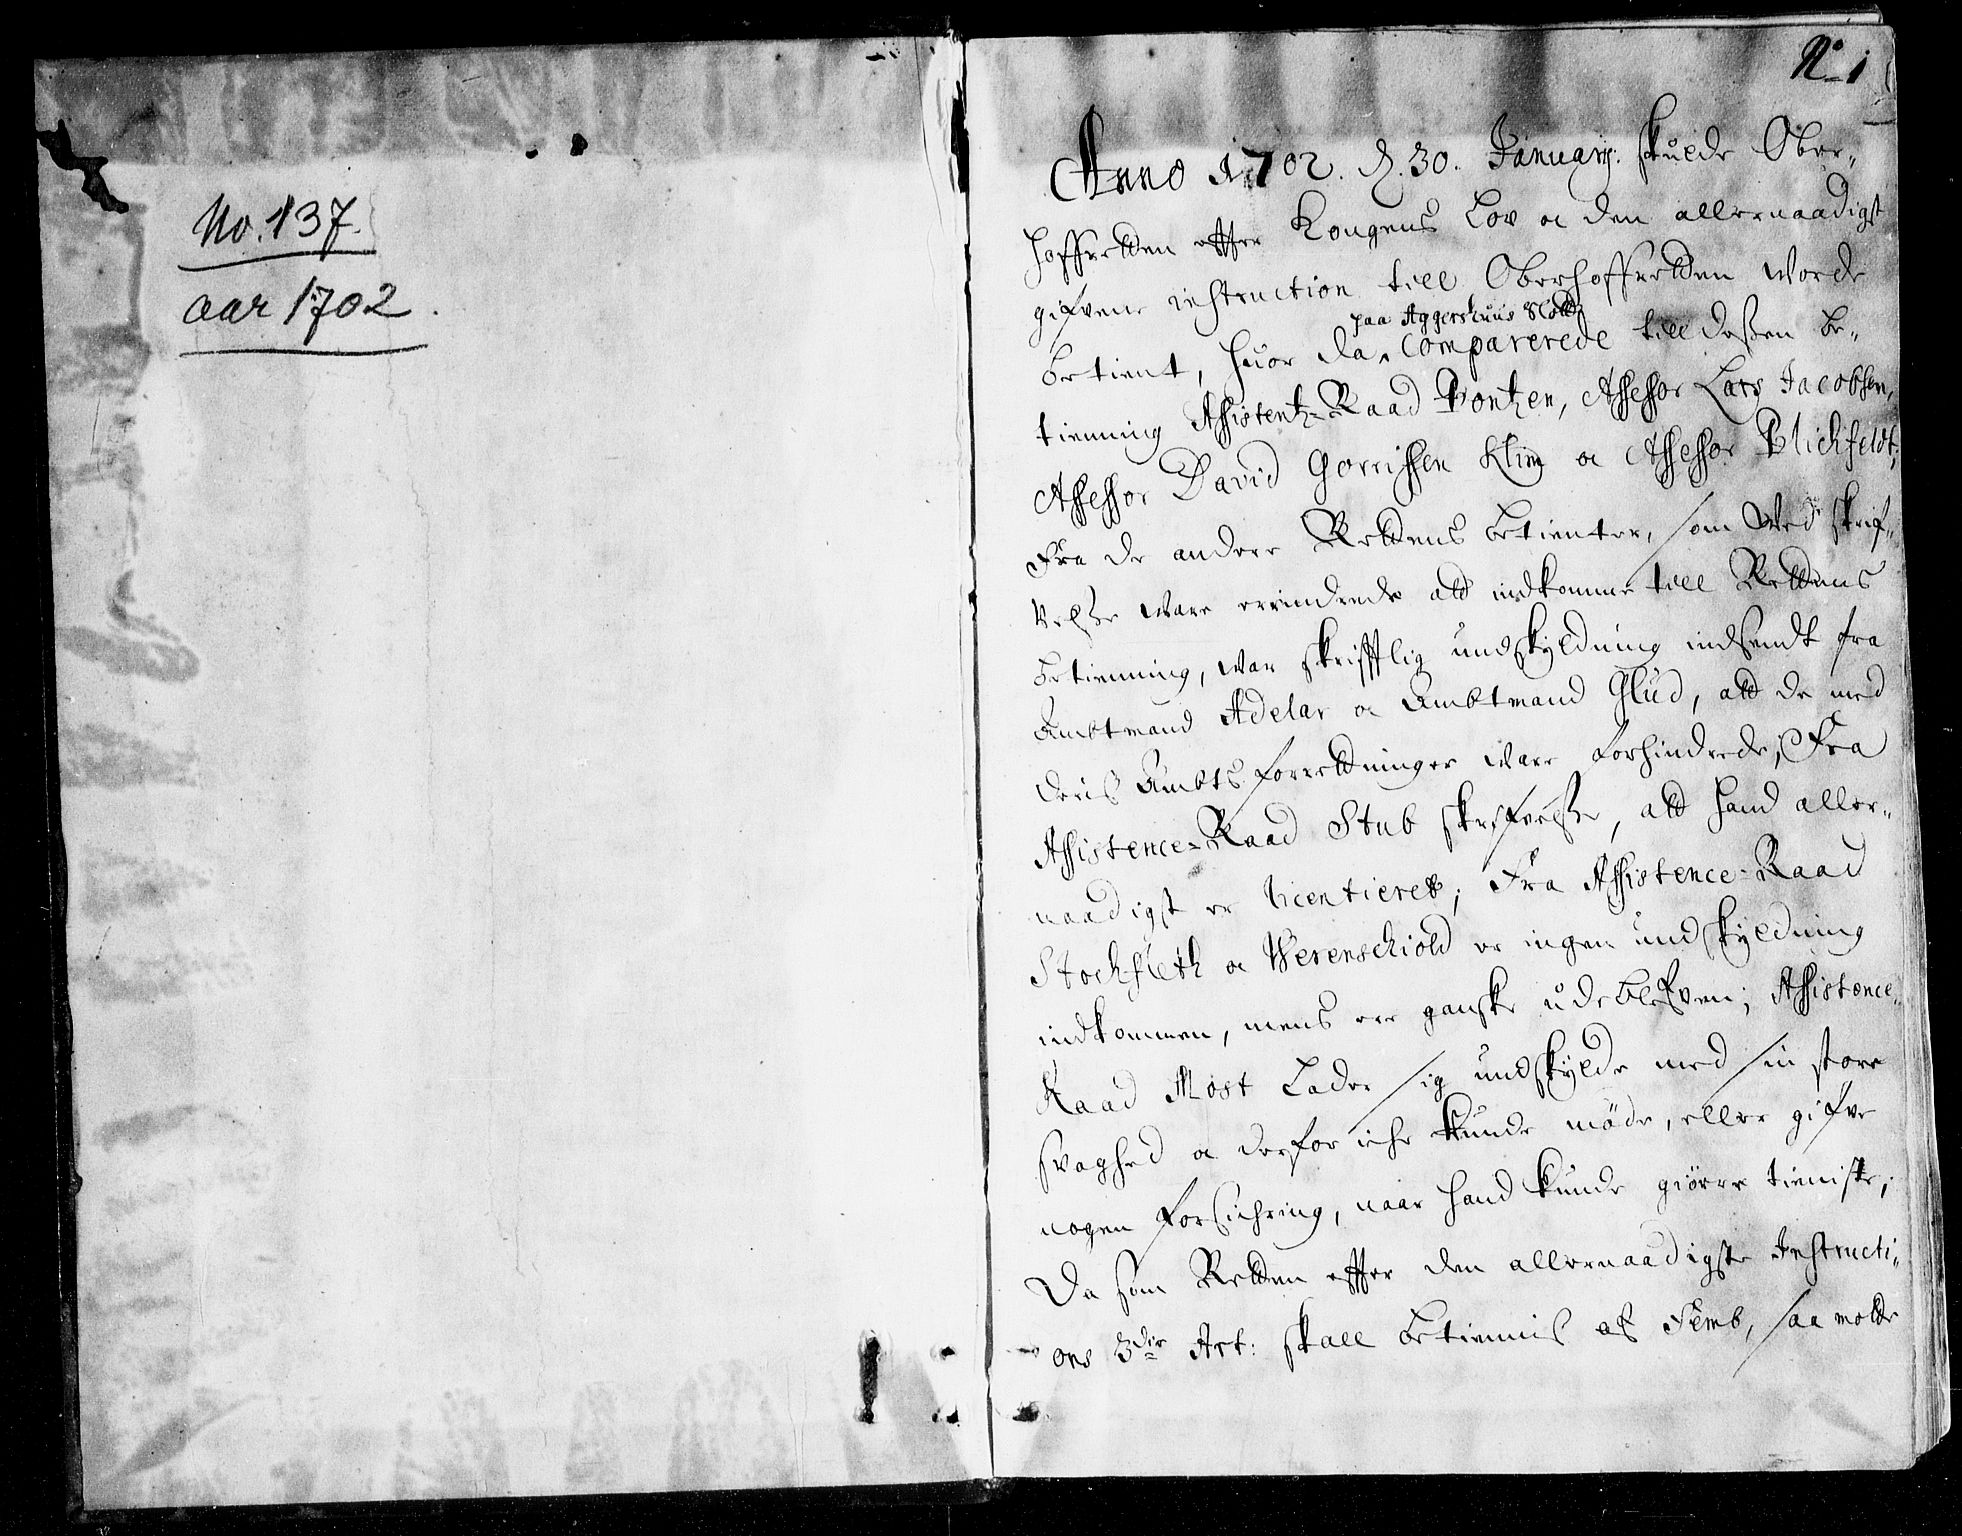 No. 137
aar 1702.
No 1
Anno 1702. d. 30. Januarij. skulde Ober-
hoffretten effter Kongens Lov oc den allernaadigst
gifvene instruction till Oberhoffretten worde
paa Aggershuus Slott
betient, huor da comparerede till dessen be-
tienning Assistentz-Raad Bontzen, Assessor Lars Jacobsen,
Assessor David Gorrissen Klim oc Assessor Blichfeldt;
Fra de andere Rettens betienter, som wed skrif-
velsse ware errindrede att indkomme till Rettens
betienning, war skrifftlig undskyldning indsendt fra
Ambtmand Adelar oc Ambtmand Glud, att de med
deris Ambts forretninger ware forhindrede, Fra
Assistence-Raad Stub skrifvelsse, att hand aller-
naadigst er licentieret; Fra Assistence-Raad
Stockfleth oc Werenschiold er ingen undskyldning
indkommen, mens ere ganske udeblefven; Assistence-
Raad Møst lader sig undskylde med sin store
svaghed oc derfor iche kunde möde, eller gifve
nogen forsichring, naar hand kunde giörre tieniste;
Da som Retten effter den allernaadigste Instructi-
ons 3die Art: skall betiennis af Femb, saa motte